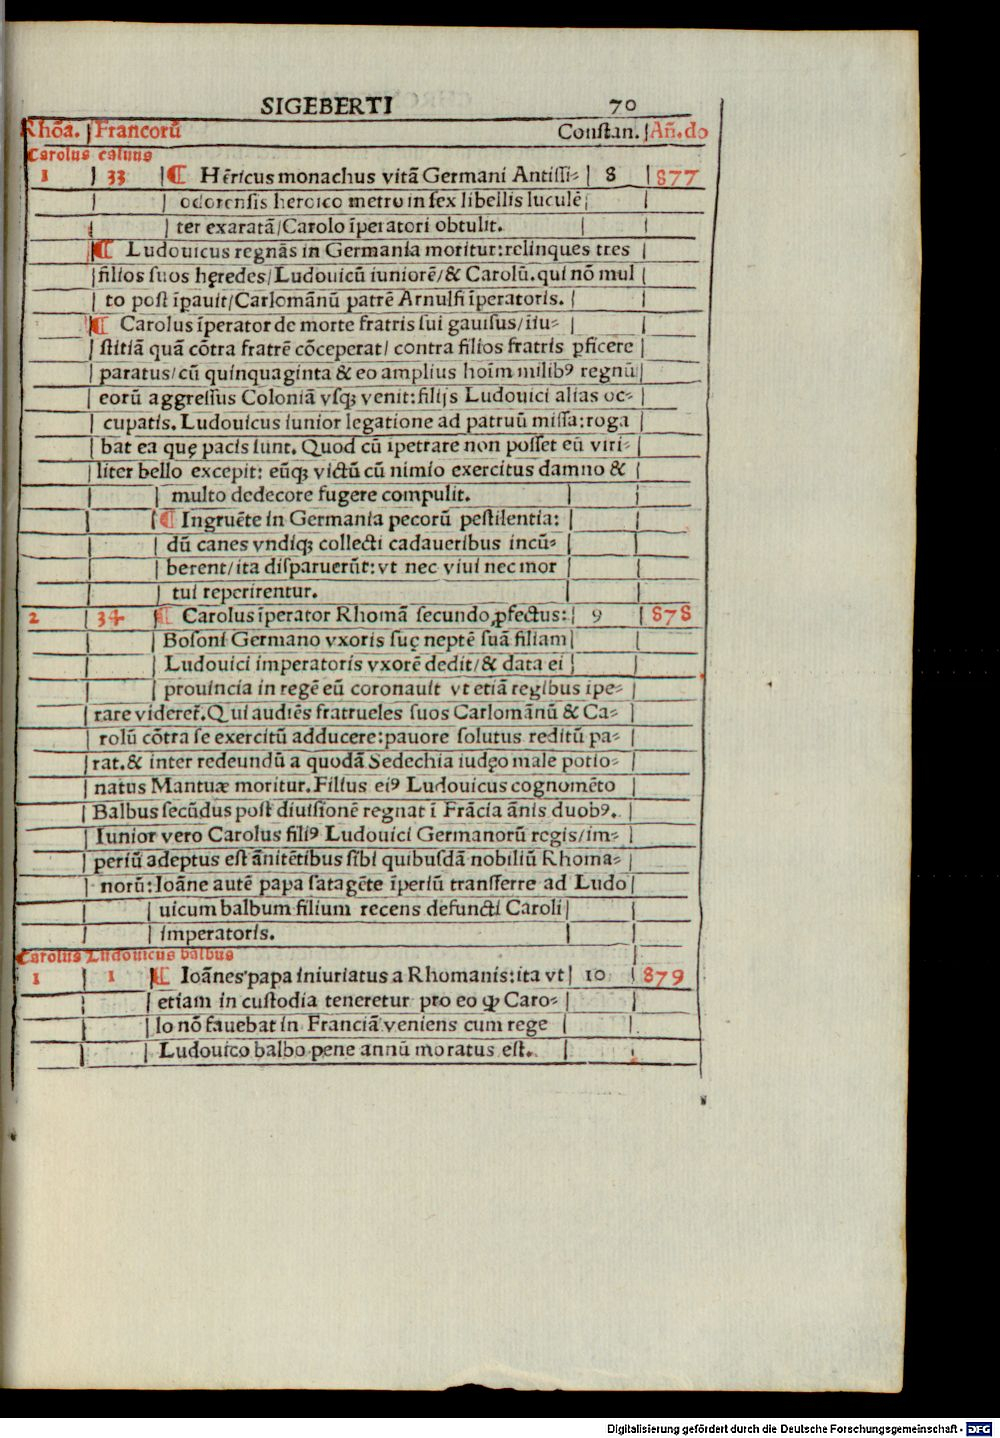 SIGEBERTI 70
Rhõa. Francorũ Constan. Añ.do
Carolus caluus
1 33 ¶ Hẽricus monachus vitã Germani Antissi⸗ 8 877
odorensis heroico metro in sex libellis luculẽ
ter exaratã/Carolo ĩperatori obtulit.
¶ Ludouicus regnãs in Germania moritur:relinques tres
filios suos hęredes/Ludouicũ iuniorẽ/& Carolũ.qui nõ mul
to post ĩpauit/Carlomãnũ patrẽ Arnulfi ĩperatoris.
¶ Carolus ĩperator de morte fratris sui gauisus/iiu⸗
stitiã quã cõtra fratrẽ cõceperat/ contra filios fratris ꝑficere
paratus/cũ quinquaginta & eo amplius hoĩm milibꝰ regnũ
eorũ aggressus Coloniã vsqꝫ venit:filijs Ludouici alias oc⸗
cupatis. Ludouicus iunior legatione ad patruũ missa:roga
bat ea quę pacis sunt. Quod cũ ĩpetrare non posset eũ viri⸗
liter bello excepit: eũqꝫ victũ cũ nimio exercitus damno &
multo dedecore fugere compulit.
¶ Ingruẽte in Germania pecorũ pestilentia:
dũ canes vndiqꝫ collecti cadaueribus incũ⸗
berent/ita disparuerũt:vt nec viui nec mor
tui reperirentur.
2 34 ¶ Carolus ĩperator Rhomã secundo ꝓfectus: 9 878
Bosoni Germano vxoris suę neptẽ suã filiam
Ludouici imperatoris vxorẽ dedit/& data ei
prouincia in regẽ eũ coronauit vt etiã regibus ipe⸗
rare videret̃.Qui audiẽs fratrueles suos Carlomãnũ & Ca⸗
rolũ cõtra se exercitũ adducere:pauore solutus reditũ pa⸗
rat.& inter redeundũ a quodã Sedechia iudęo male potio⸗
natus Mantuæ moritur.Filius eiꝰ Ludouicus cognomẽto
Balbus secũdus post diuisionẽ regnat ĩ Frãcia ãnis duobꝰ.
Iunior vero Carolus filiꝰ Ludouici Germanorũ regis/im⸗
periũ adeptus est ãnitẽtibus sibi quibusdã nobiliũ Rhoma⸗
norũ:Ioãne autẽ papa satagẽte ĩperiũ transferre ad Ludo
uicum balbum filium recens defuncti Caroli
imperatoris.
Carolus Ludouicus balbus
1 1 ¶ Ioãnes papa iniuriatus a Rhomanis:ita vt 10 879
etiam in custodia teneretur pro eo ꝙ Caro⸗
lo nõ fauebat in Franciã veniens cum rege
Ludouico balbo pene annũ moratus est.
Digitalisierung gefördert durch die Deutsche Forschungsgemeinschaft - DFG